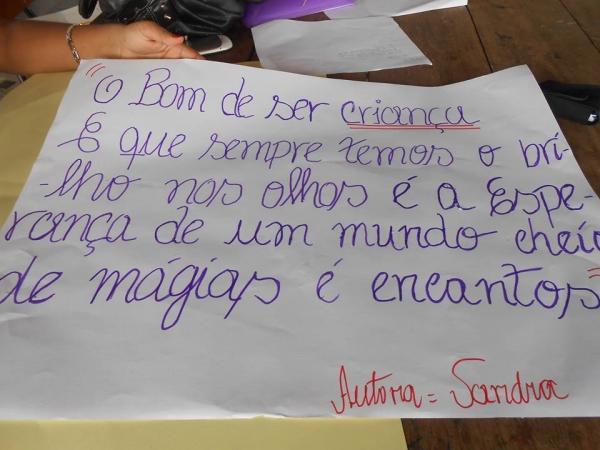 "O Bom de ser criança
É que sempre temos o bri-
-lho nos olhos é a Espe-
rança de um mundo cheio
de mágias é encantos"
Autora = Sandra